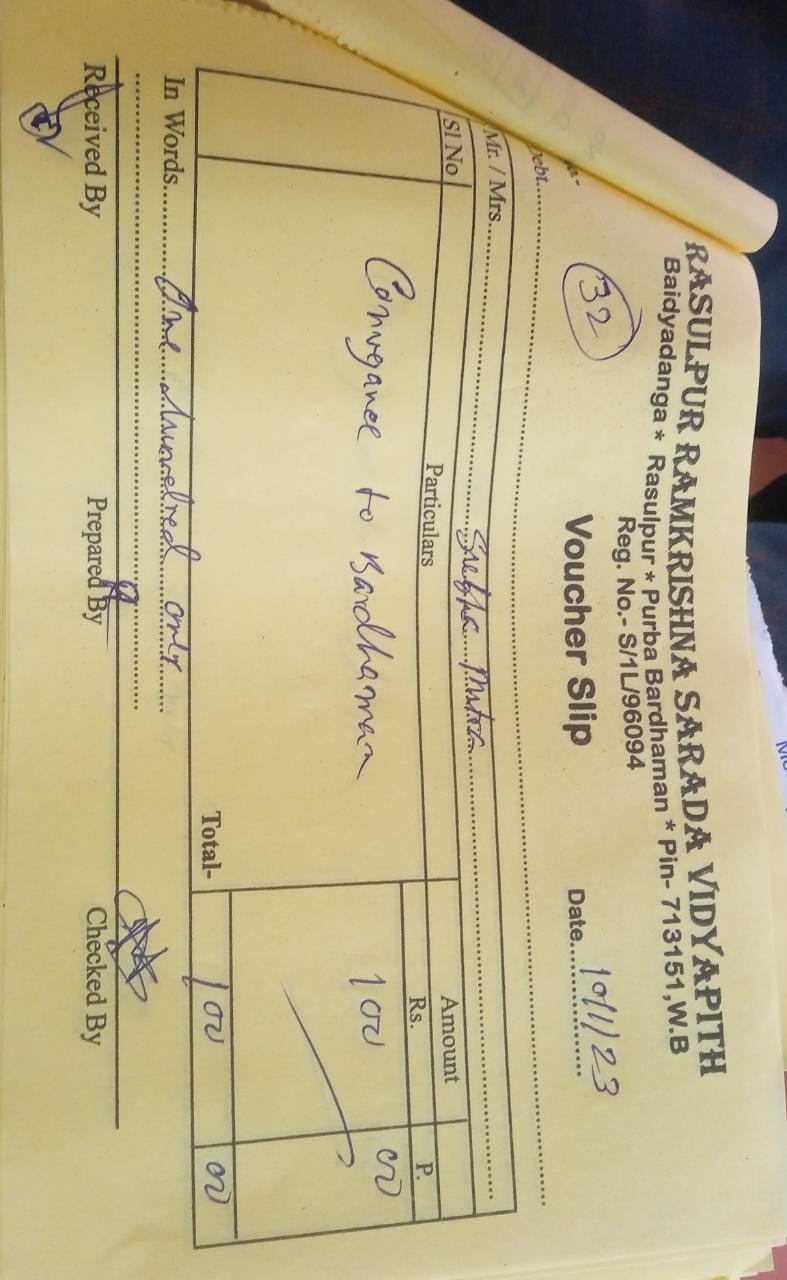 RASULPUR RAMKRISHNA SARADA VIDYAPITH
Baidyadanga * Rasulpur * Purba Bardhaman * Pin- 713151,W.B
Reg. No.- S/1L/96094
32 Voucher Slip Date 10/1/23
Debt.
Mr. / Mrs.
Sl No Particulars Amount
Rs. P.
Conveganee to Bardhaman 100 00
Total- 100 00
In Words One hundred only
Received By Prepared By Checked By